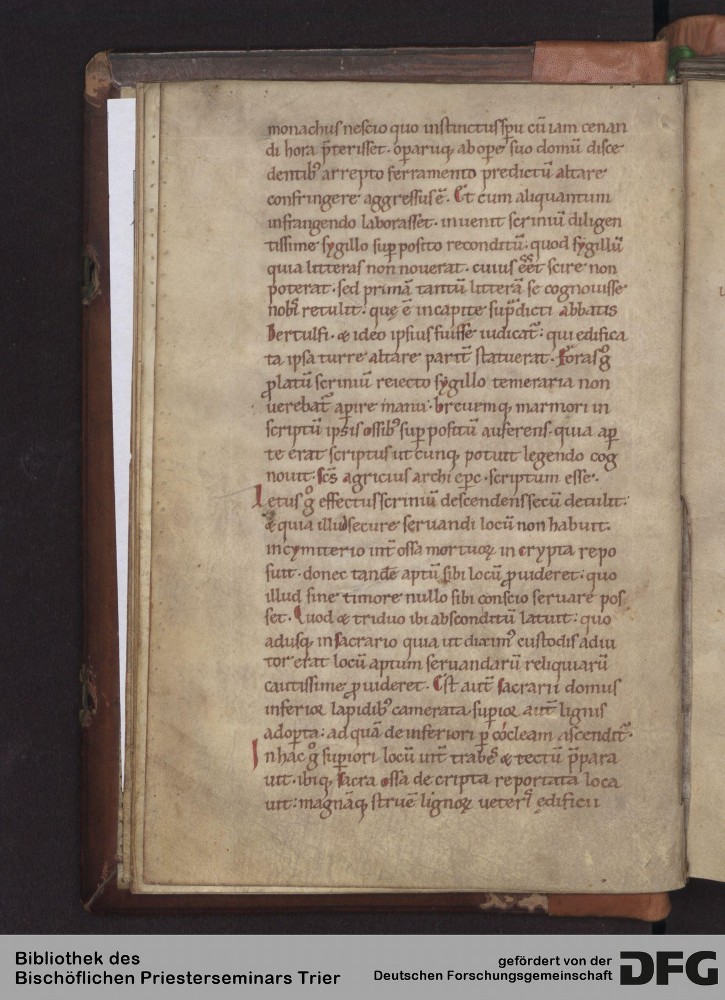 monachus nescio quo instinctus sp̄u cū iam cenan
di hora p̄terisset· op̄arusq; ab op̄e suo domū disce
dentib; arrepto ferramento predictū altare
confringere aggressus ē. Et cum aliquantum
infrangendo laborasset· inuenit scriniū diligen
tissime sygillo sup̄posito reconditū· quod sygillū
quia litteras non nouerat· cuius eēt scire non
poterat· sed primā tantū litterā se cognouisse
nob̄ retulit· quę ē in capite sup̄dicti abbatis
Bertulfi· & ideo ipsius fuisse iudicat̄· qui edifica
ta ipsa turre altare parit̄ statuerat. Foras gͦ
ꝓlatū scriniū reiecto sygillo temeraria non
uerebat̄ ap̄ire manu· breuemq; marmori in
scriptū ipsis ossib; sup̄positū auferens· quia ap̄
te erat scriptus utcunq; potuit legendo cog
nouit· scs̄ agricius archiep̄c· scriptum esse.
Letus gͦ effectus scriniū descendens secū detulit·
& quia illud secure seruandi locū non habuit·
in cymiterio int̄ ossa mortuoꝝ in crypta repo
suit· donec tandē aptū sibi locū ꝓuideret· quo
illud sine timore nullo sibi conscio seruare pos
set. Quod & triduo ibi absconditū latuit· quo
adusq; in sacrario quia ut dixim; custodis adiu
tor erat locū aptum seruandarū reliquiarū
cautissime ꝓuideret. Est aut̄ sacrarii domus
inferior lapidib; camerata· sup̄ior aut̄ lignis
adop̄ta· ad quā de inferiori p̄ cócleam ascendit̄·
In hac gͦ sup̄iori locū int̄ trabes & tectū p̄para
uit· ibiq; sacra ossa de cripta reportata loca
uit· magnāq; struē lignoꝝ ueteris ędificii
Bibliothek des
Bischöflichen Priesterseminars Trier
gefördert von der
Deutschen Forschungsgemeinschaft
DFG